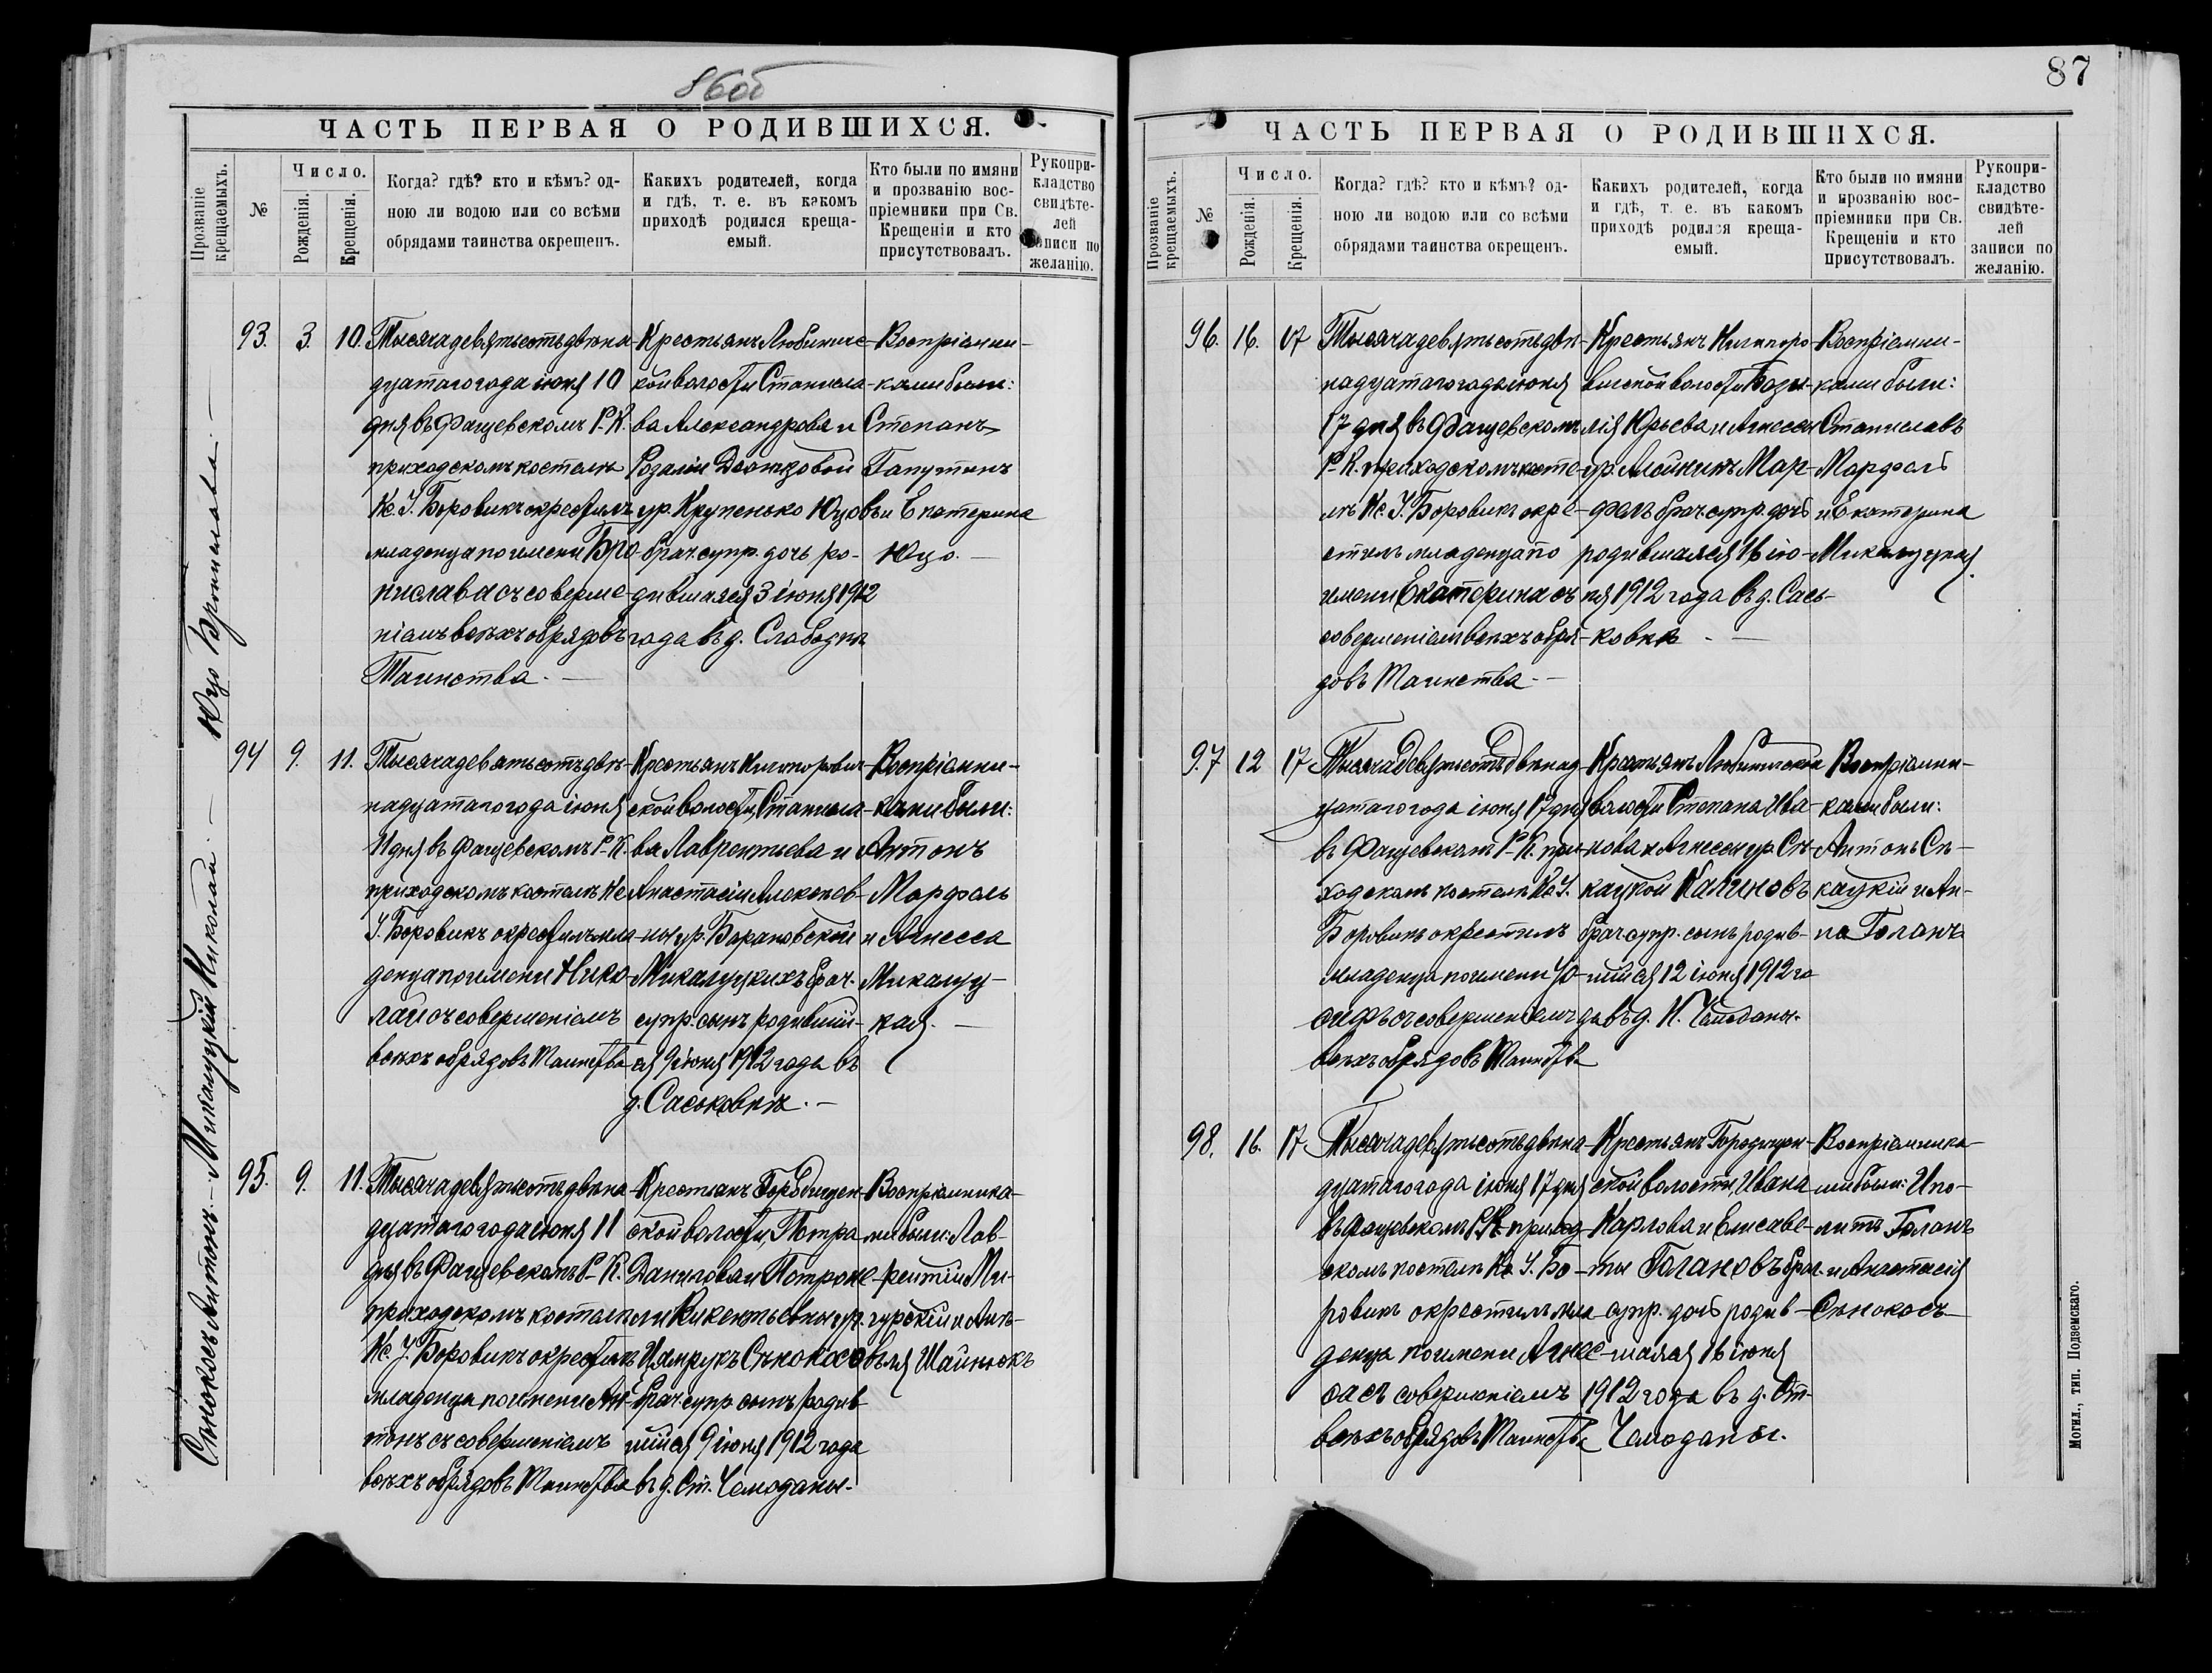 86об
ЧАСТЬ ПЕРВАЯ О РОДИВШИХСЯ.
Прозваніе крещаемыхъ.
№
Число.
Рожденія.
Крещенія.
Когда? гдѣ? кто и кѣмъ? од-
ною ли водою или со всѣми
обрядами таинства окрещенъ.
Какихъ родителей, когда
и гдѣ, т. е. въ какомъ
приходѣ родился креща-
емый.
Кто были по имяни
и прозванію вос-
пріемники при Св.
Крещеніи и кто
присутствовалъ.
Рукопри-
кладство
свидѣте-
лей
записи по
желанію.
Юцо Бронислава.
93.
3.
10.
Тысяча девятьсотъ двѣна-
дцатаго года іюня 10
дня въ Фащевскомъ Р. К.
приходскомъ костелѣ
Кс. І. Боровикъ окрестилъ
младенца по имени Бро-
нислава съ соверше-
ніемъ всѣхъ обрядовъ
Таинства.
Крестьянъ Любинич-
ской волости Станисла-
ва Александрова и
Розаліи
ур. Крупенько Юцовъ
брач. супр. дочь ро-
дившаяся 3 іюня 1912
года въ д. Слободки
Воспріемни-
ками были:
Степанъ
Гапутинъ
и Екатерина
Юцо.
Микалуцкій Николай.
94
9.
11.
Тысяча девятьсотъ двѣ-
надцатаго года іюня
11 дня въ Фащевскомъ Р-К.
приходскомъ костелѣ Кс
І. Боровикъ окрестилъ мла-
денца по имени Нико-
лай съ совершеніемъ
всѣхъ обрядовъ Таинства
Крестьянъ
ской волости, Станисла-
ва Лаврентьева и
Анастасіи Алексѣев-
ны ур. Барановской
Микалуцкихъ брач.
супр. сынъ родивший-
ся 9 іюня 1912 года въ
д. Саськовкѣ.
Воспріемни-
ками были:
Антонъ
Марфель
и Агнесса
Микалуц-
кая.
Сѣнокосъ Антонъ.
95.
9.
11.
Тысяча девятьсотъ двѣна-
дцатаго года іюня 11
дня въ Фащевскомъ Р-К.
приходскомъ костелѣ
Кс. І. Боровикъ окрестилъ
младенца по имени Ан-
тонъ съ совершеніемъ
всѣхъ обрядовъ Таинства
Крестьянъ Городищен-
ской волости, Петра
Данилова и Петроне-
ли Викентьевны ур.
Сѣнокосовъ
брач. супр. сынъ родив-
шійся 9 іюня 1912 года
въ д. Ст. Чемоданы.
Воспріемника-
ми были: Лав-
рентій Ми-
гурскій и Анѣ-
ля Шайнюкъ
87
ЧАСТЬ ПЕРВАЯ О РОДИВШИХСЯ.
Прозваніе крещаемыхъ.
№
Число.
Рожденія.
Крещенія.
Когда? гдѣ? кто и кѣмъ? од-
ною ли водою или со всѣми
обрядами таинства окрещенъ.
Какихъ родителей, когда
и гдѣ, т. е. въ какомъ
приходѣ родился креща-
емый.
Кто были по имяни
и прозванію вос-
пріемники при Св.
Крещеніи и кто
присутствовалъ.
Рукопри-
кладство
свидѣте-
лей
записи по
желанію.
96.
16.
17
Тысяча девятьсотъ двѣ-
надцатаго года іюня
17 дня въ Фащевскомъ
Р-К. приходскомъ косте-
лѣ Кс. І. Боровикъ окре-
стилъ младенца по
имени Екатерина съ
совершеніемъ всѣхъ обря-
довъ Таинства.
Крестьянъ
волости
Юрьева и Агнессы
ур. Мар-
фель брач. супр. дочь
родившаяся 16 ію-
ня 1912 года въ д. Сась-
ковкѣ
Воспріемни-
ками были:
Станиславъ
Марфель
и Екатерина
Микалуцкая.
97
12
17
Тысяча девятьсотъ двѣнад-
цатаго года іюня 17 дня
въ Фащевскомъ Р-К. при-
ходскомъ костелѣ Кс. І.
Боровикъ окрестилъ
младенца по имени Іо-
сифъ съ совершеніемъ
всѣхъ обрядовъ Таинства
Крестьянъ Любиничской
волости Степана Ива-
нова и Агнессы ур. Сѣ-
кацкой Калиновъ
брач. супр. сынъ родив-
шійся 12 іюня 1912 го
да въ д. Н. Чемоданы.
Воспріемни-
ками были:
Антонъ Сѣ-
кацкій и Ан-
на Голанъ
98.
16.
17
Тысяча девятьсотъ двѣна-
дцатаго года іюня 17 дня
въ Фащевскомъ Р.К. приход-
скомъ костелѣ Кс. І. Бо-
ровикъ окрестилъ мла-
денца по имени Агнес-
са съ совершеніемъ
всѣхъ обрядовъ Таинства
Крестьянъ Городищен-
ской волости, Ивана
Карлова и Елисаве-
ты Голановъ брач.
супр. дочь родив-
шаяся 16 іюня
1912 года въ д. Ст.
Чемоданы.
Воспріемника-
ми были: Ипо-
литъ Голанъ
и Анастасія
Сѣнокосъ
Могил., тип. Подземскаго.